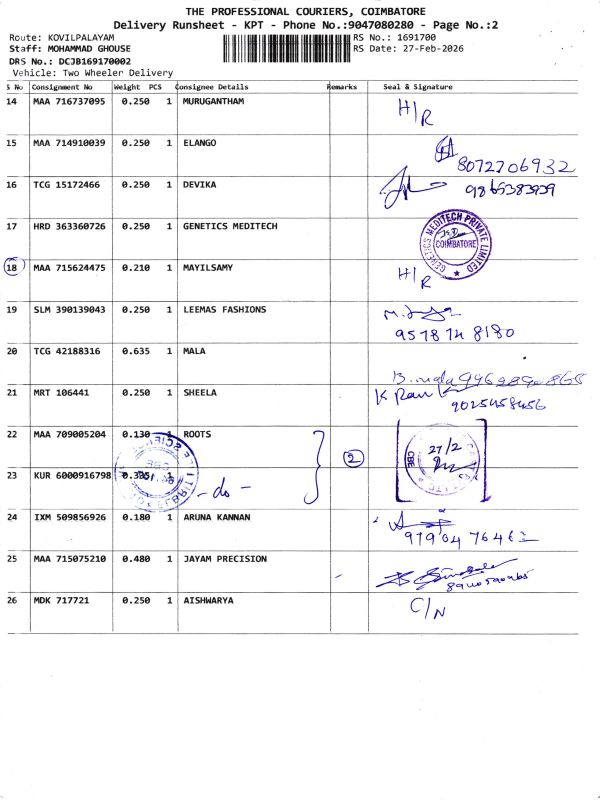 THE PROFESSIONAL COURIERS, COIMBATORE
Delivery Runsheet - KPT - Phone No.:9047080280 - Page No.:2
Route: KOVILPALAYAM RS No.: 1691700
Staff: MOHAMMAD GHOUSE RS Date: 27-Feb-2026
DRS No.: DCJB169170002
Vehicle: Two Wheeler Delivery
S No Consignment No Weight PCS Consignee Details Remarks Seal & Signature
14 MAA 716737095 0.250 1 MURUGANTHAM H/R
15 MAA 714910039 0.250 1 ELANGO 8072706932
16 TCG 15172466 0.250 1 DEVIKA 9865383939
17 HRD 363360726 0.250 1 GENETICS MEDITECH GENETICS MEDITECH PRIVATE LIMITED COIMBATORE
18 MAA 715624475 0.210 1 MAYILSAMY H/R
19 SLM 390139043 0.250 1 LEEMAS FASHIONS
9578748180
20 TCG 42188316 0.635 1 MALA
21 MRT 106441 0.250 1 SHEELA
9025458456
22 MAA 709005204 0.130 1 ROOTS 2 27/2 CBE
23 KUR 6000916798 1 - do -
24 IXM 509856926 0.180 1 ARUNA KANNAN
25 MAA 715075210 0.480 1 JAYAM PRECISION
26 MDK 717721 0.250 1 AISHWARYA C/N